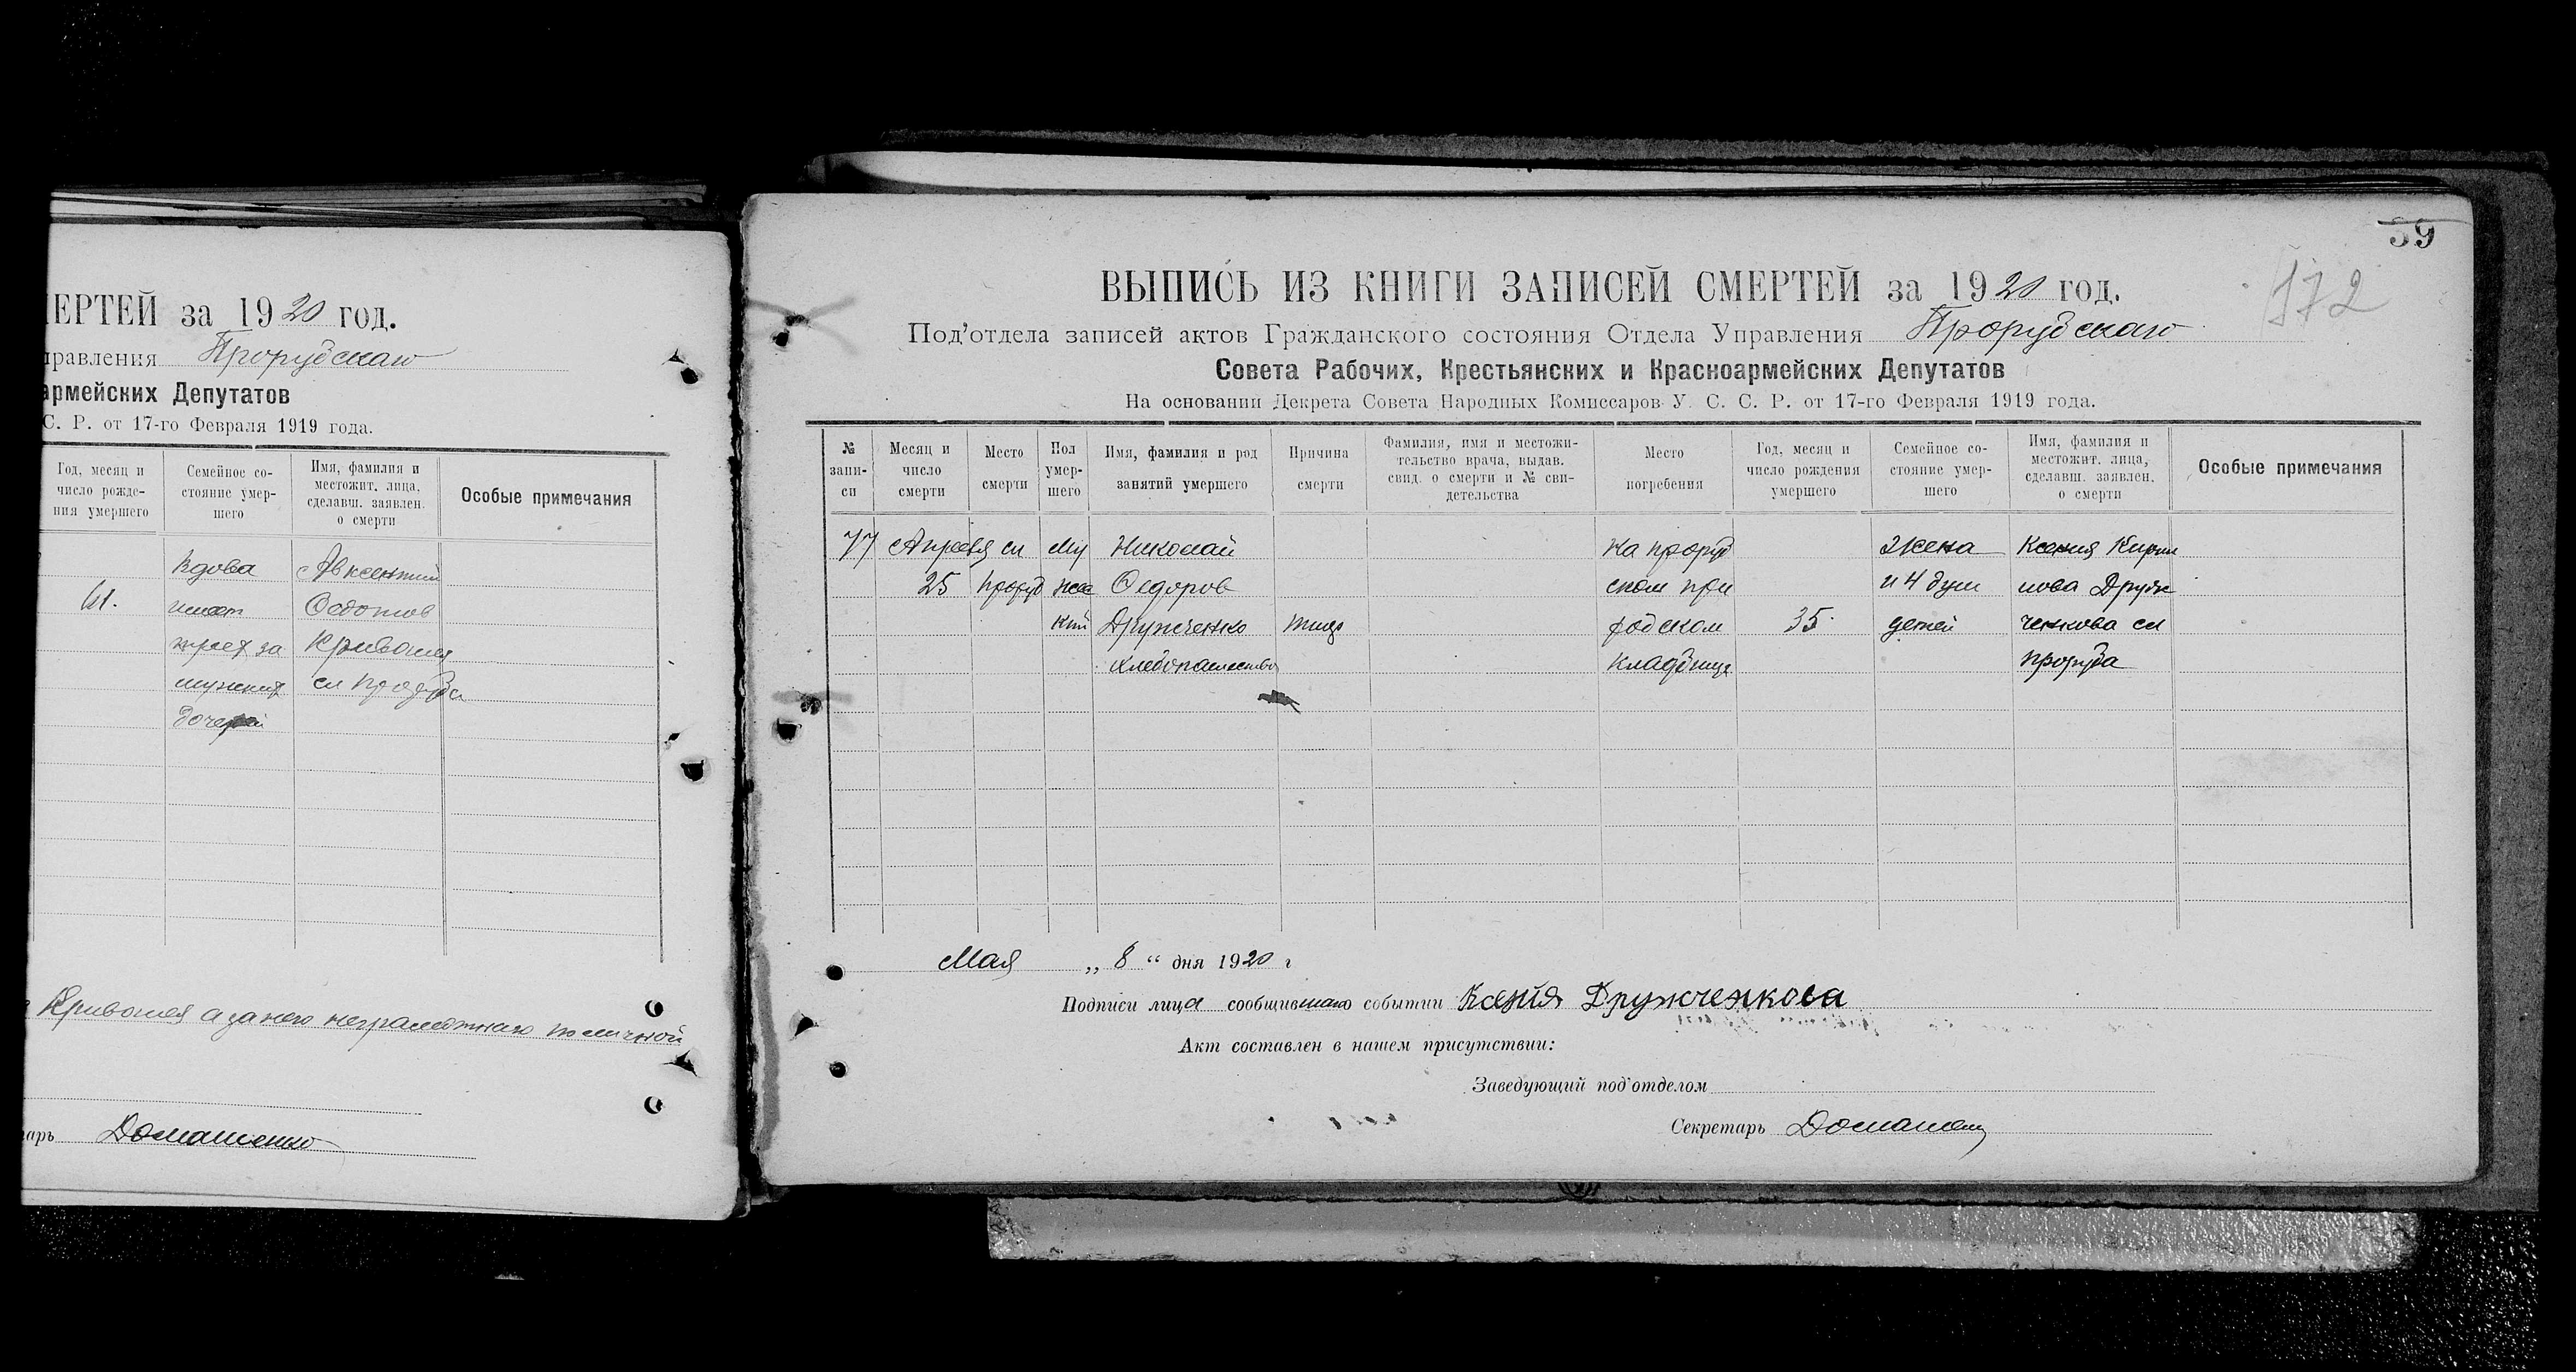 МЕРТЕЙ за 1920 год.
правления Прорубскаго
армейских Депутатов
С. Р. от 17-го Февраля 1919 года.
Год, месяц и число рожде-ния умершего
Семейное со-стояние умер-шего
Имя, фамилия и местожит. лица, сделавш. заявлен. о смерти
Особые примечания
61.
Вдова
имеет
дочерей
Авксентий
Федотов
Кривошея
сл Проруба
Кривошея а за него неграмотного по личной
арь Домашенко
39
172
ВЫПИСЬ ИЗ КНИГИ ЗАПИСЕЙ СМЕРТЕЙ за 1920 год.
Под'отдела записей актов Гражданского состояния Отдела Управления Прорубскаго
Совета Рабочих, Крестьянских и Красноармейских Депутатов
На основании Декрета Совета Народных Комиссаров У. С. С. Р. от 17-го Февраля 1919 года.
№ запи-си
Месяц и число смерти
Место смерти
Пол умер-шего
Имя, фамилия и род занятий умершего
Причина смерти
Фамилия, имя и местожи-тельство врача, выдав. свид. о смерти и № сви-детельства
Место погребения
Год, месяц и число рождения умершего
Семейное со-стояние умер-шего
Имя, фамилия и местожит. лица, сделавш. заявлен. о смерти
Особые примечания
77 Апреля сл Му Николай На проруб Жена Ксения Кирил
25 Проруб жес Федоров ском при и 4 душ лова Друж
кий Дружченко тиф родском 35 детей ченкова сл
Хлебопашество кладбище Проруба
Мая „ 8 “ дня 1920 г
Подписи лица сообщившаго событии Ксения Дружченкова
Акт составлен в нашем присутствии:
Заведующий под'отделом
Секретарь Домашенко